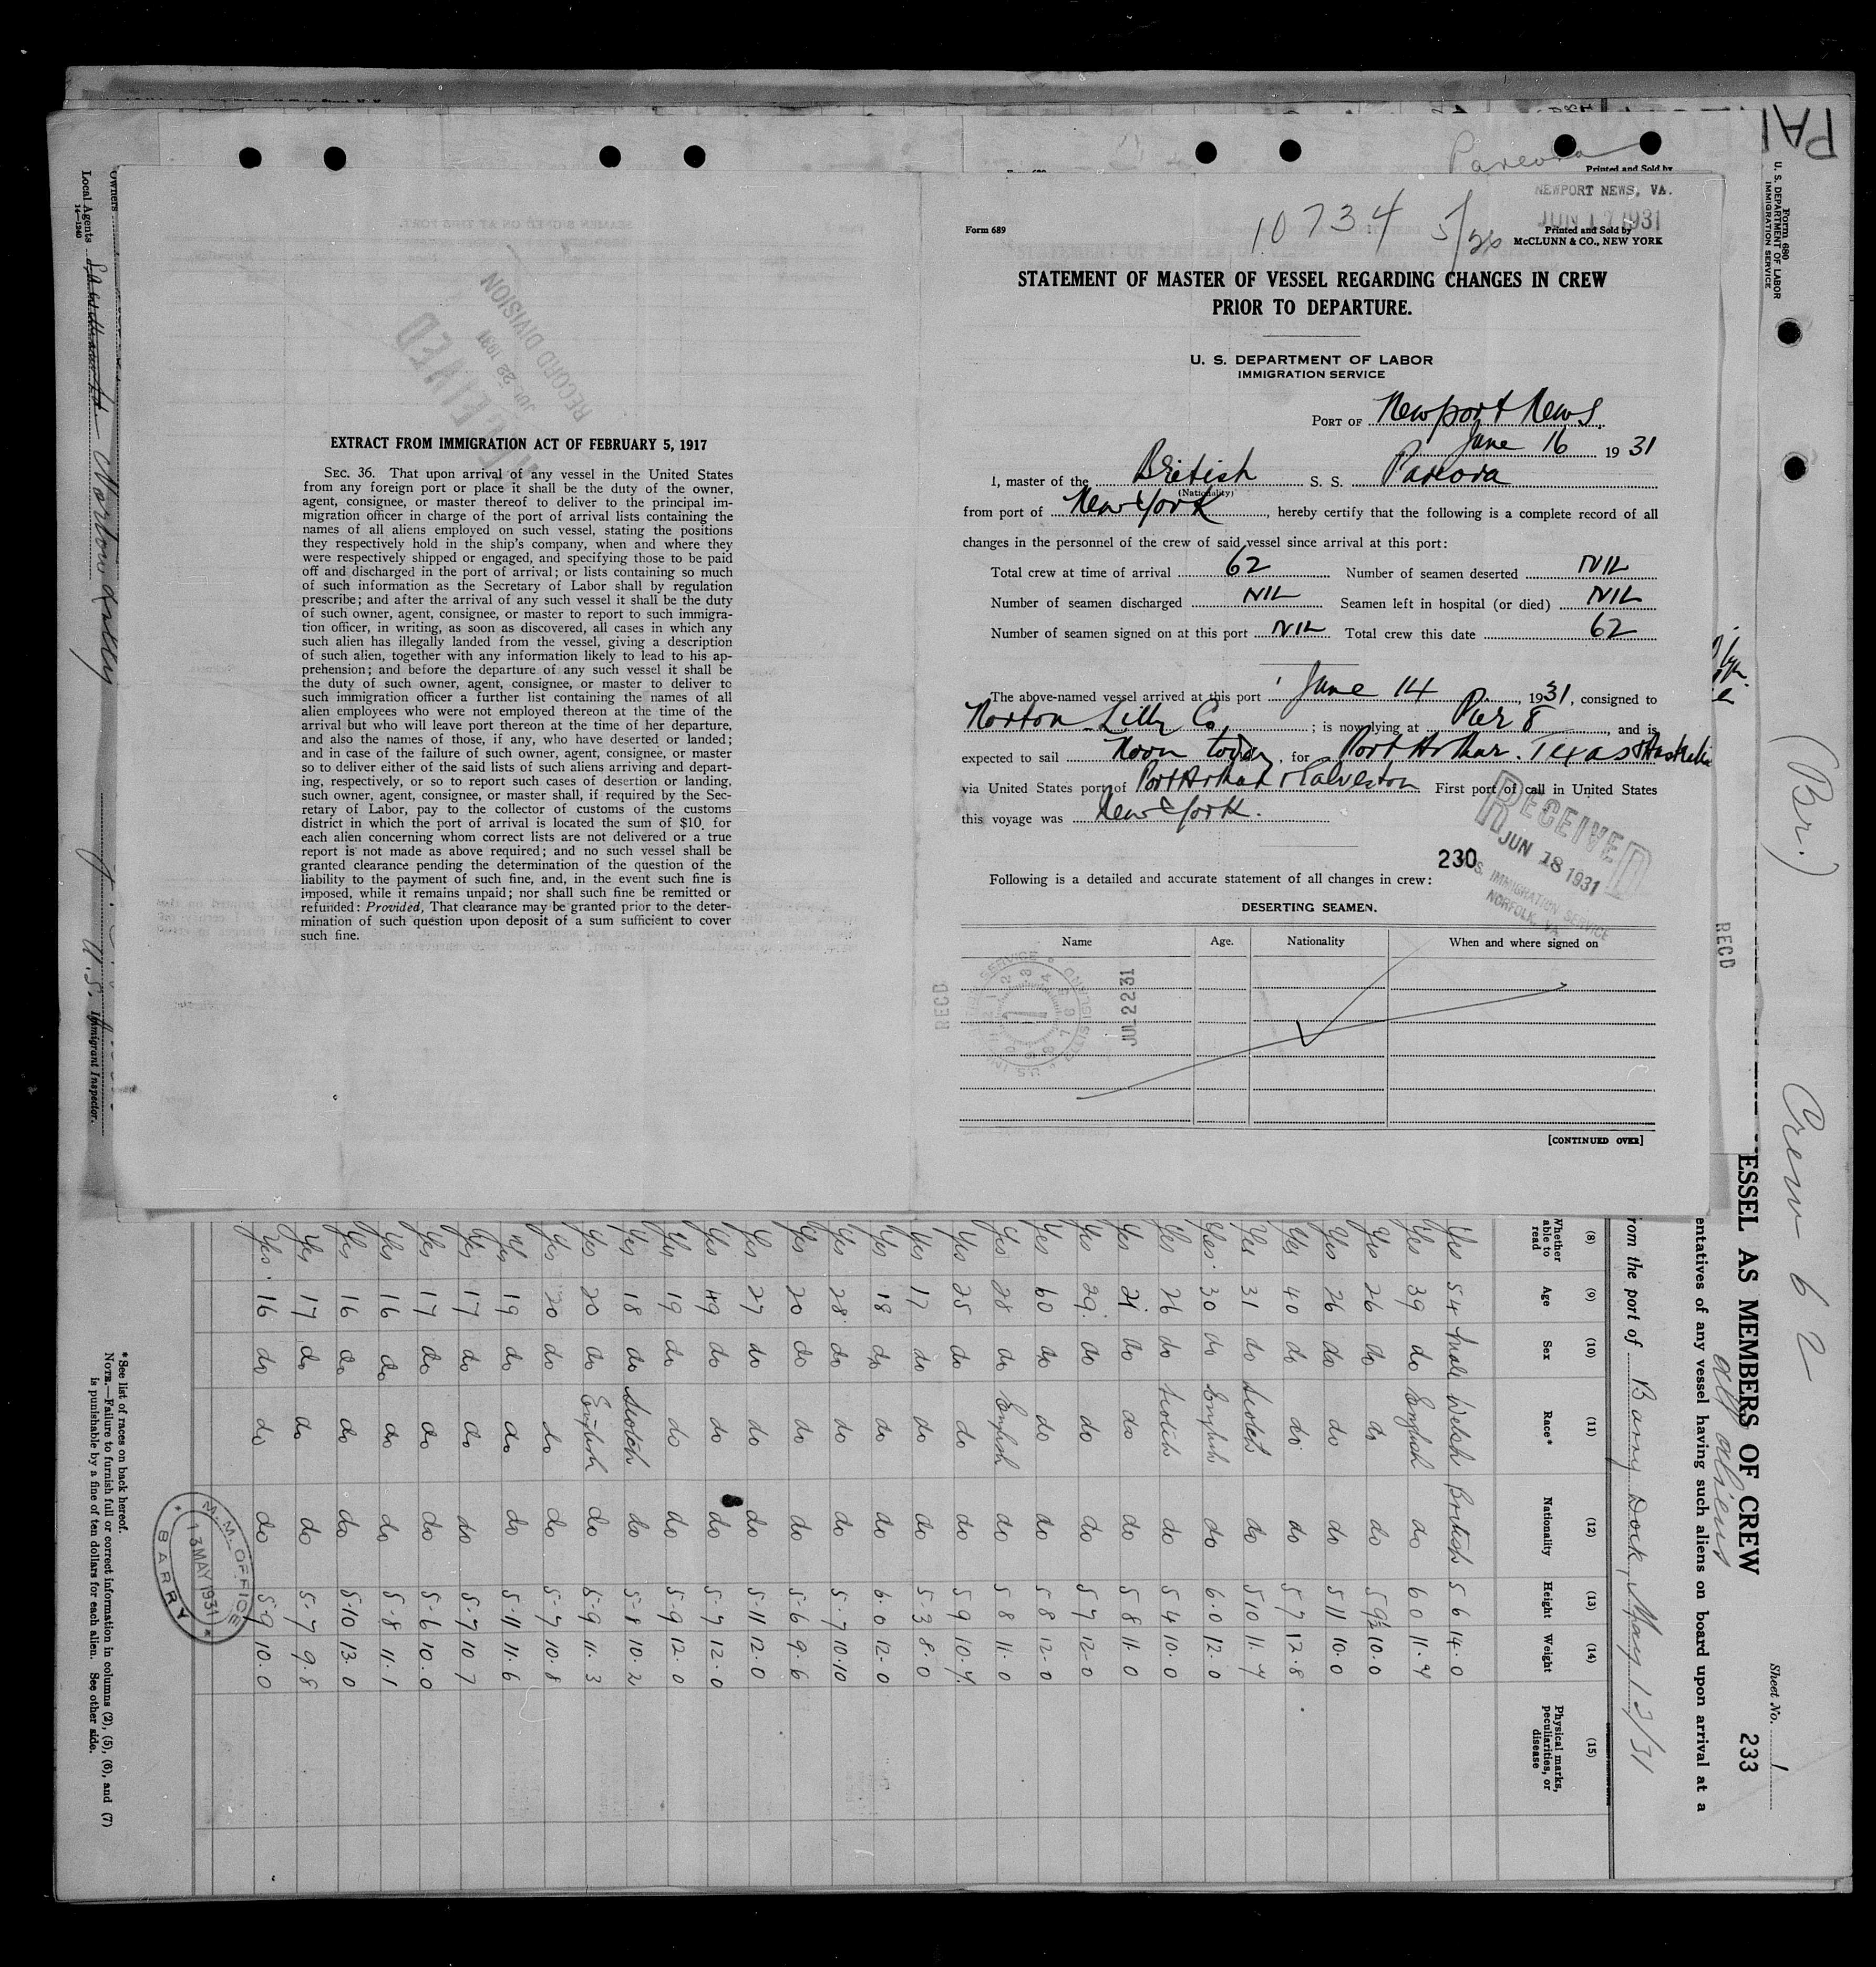 Pareora
Printed and Sold by
NEWPORT NEWS, VA.
JUN 17 1931
10734 5/26
Form 689
Printed and Sold by
McCLUNN & CO., NEW YORK
STATEMENT OF MASTER OF VESSEL REGARDING CHANGES IN CREW
PRIOR TO DEPARTURE.
U. S. DEPARTMENT OF LABOR
IMMIGRATION SERVICE
PORT OF Newport News
June 16 1931
I, master of the British S. S. Pareora
(Nationality)
from port of New York, hereby certify that the following is a complete record of all
changes in the personnel of the crew of said vessel since arrival at this port:
Total crew at time of arrival 62 Number of seamen deserted NIL
Number of seamen discharged NIL Seamen left in hospital (or died) NIL
Number of seamen signed on at this port NIL Total crew this date 62
The above-named vessel arrived at this port June 14, 1931, consigned to
Norton Lilly Co; is now lying at Pier 8, and is
expected to sail Noon today, for Port Arthur. Texas & Australia
via United States port of Port Arthur & Galveston. First port of call in United States
this voyage was New York.
RECEIVED
JUN 18 1931
U. S. IMMIGRATION SERVICE
NORFOLK, VA.
230
Following is a detailed and accurate statement of all changes in crew:
DESERTING SEAMEN.
Name Age. Nationality When and where signed on
RECD
JUL 22 31
[CONTINUED OVER]
RECEIVED
JUL 22 1931
RECORD DIVISION
EXTRACT FROM IMMIGRATION ACT OF FEBRUARY 5, 1917
SEC. 36. That upon arrival of any vessel in the United States
from any foreign port or place it shall be the duty of the owner,
agent, consignee, or master thereof to deliver to the principal im-
migration officer in charge of the port of arrival lists containing the
names of all aliens employed on such vessel, stating the positions
they respectively hold in the ship's company, when and where they
were respectively shipped or engaged, and specifying those to be paid
off and discharged in the port of arrival; or lists containing so much
of such information as the Secretary of Labor shall by regulation
prescribe; and after the arrival of any such vessel it shall be the duty
of such owner, agent, consignee, or master to report to such immigra-
tion officer, in writing, as soon as discovered, all cases in which any
such alien has illegally landed from the vessel, giving a description
of such alien, together with any information likely to lead to his ap-
prehension; and before the departure of any such vessel it shall be
the duty of such owner, agent, consignee, or master to deliver to
such immigration officer a further list containing the names of all
alien employees who were not employed thereon at the time of the
arrival but who will leave port thereon at the time of her departure,
and also the names of those, if any, who have deserted or landed;
and in case of the failure of such owner, agent, consignee, or master
so to deliver either of the said lists of such aliens arriving and depart-
ing, respectively, or so to report such cases of desertion or landing,
such owner, agent, consignee, or master shall, if required by the Sec-
retary of Labor, pay to the collector of customs of the customs
district in which the port of arrival is located the sum of $10 for
each alien concerning whom correct lists are not delivered or a true
report is not made as above required; and no such vessel shall be
granted clearance pending the determination of the question of the
liability to the payment of such fine, and, in the event such fine is
imposed, while it remains unpaid; nor shall such fine be remitted or
refunded: Provided, That clearance may be granted prior to the deter-
mination of such question upon deposit of a sum sufficient to cover
such fine.
PA
Form 680
U. S. DEPARTMENT OF LABOR
IMMIGRATION SERVICE
(Br.) Crew 62
Sheet No. 1
233
ESSEL AS MEMBERS OF CREW
all aliens
entatives of any vessel having such aliens on board upon arrival at a
rom the port of Barry Dock, May 13/31
RECD
(8) (9) (10) (11) (12) (13) (14) (15)
Whether able to read Age Sex Race* Nationality Height Weight Physical marks, peculiarities, or disease
Yes 54 Male Welsh British 5 6 14.0
Yes 39 do English do 6 0 11.4
Yes 26 do do do 5 9½ 10.0
Yes 26 do do do 5 11 10.0
Yes 40 do do do 5 7 12.8
Yes 31 do Scotch do 5 10 11.4
Yes 30 do English do 6.0 12.0
Yes 26 do Scotch do 5 4 10.0
Yes 21 do do do 5 8 11.0
Yes 29 do do do 5 7 12.0
Yes 60 do do do 5 8 12.0
Yes 28 do English do 5 8 11.0
Yes 25 do do do 5 9 10.4
Yes 17 do do do 5-3 8.0
Yes 18 do do do 6.0 12.0
Yes 28 do do do 5-7 10.10
Yes 20 do do do 5-6 9.6
Yes 27 do do do 5-11 12.0
Yes 49 do do do 5-7 12.0
Yes 19 do do do 5-9 12.0
Yes 18 do Scotch do 5-8 10.2
Yes 20 do English do 5-9 11.3
Yes 20 do do do 5-7 10.8
Yes 19 do do do 5-11 11.6
Yes 17 do do do 5-7 10.7
Yes 17 do do do 5-6 10.0
Yes 16 do do do 5-8 11.1
Yes 16 do do do 5-10 13.0
Yes 17 do do do 5-7 9.8
Yes 16 do do do 5-9 10.0
M.M. OFFICE
13 MAY 1931
BARRY
*See list of races on back hereof.
NOTE.—Failure to furnish full or correct information in columns (2), (5), (6), and (7)
is punishable by a fine of ten dollars for each alien. See other side.
Owners
Local Agents Norton Lilly
14—1240
U.S. Immigrant Inspector.